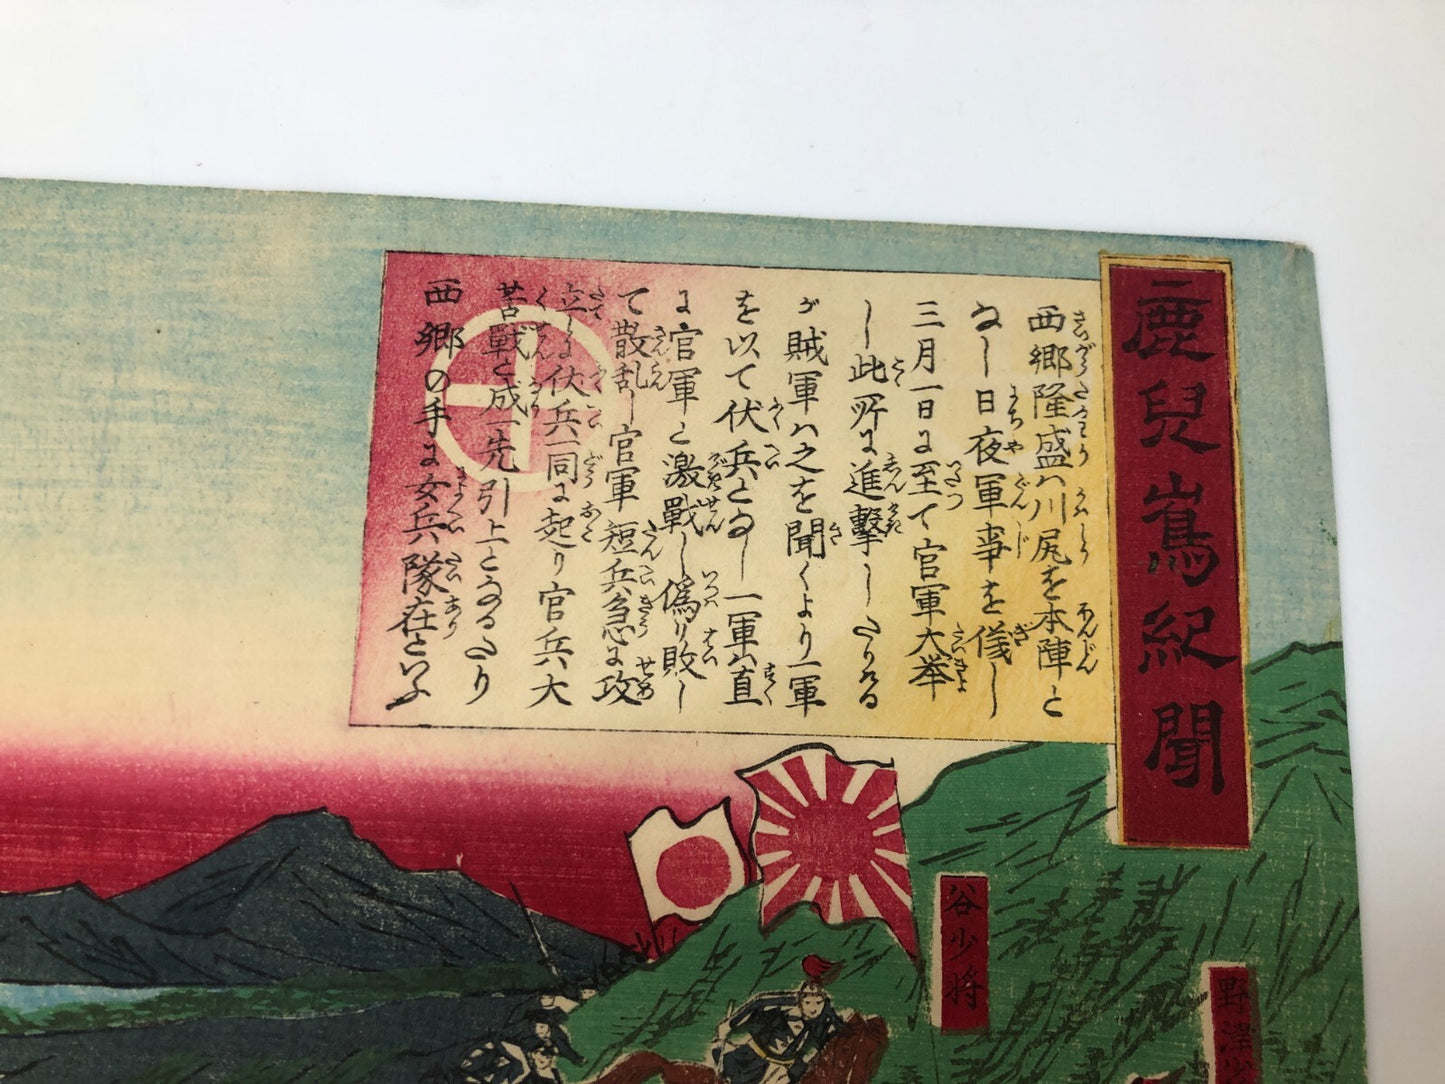 鹿兒嶌紀聞
西郷隆盛ハ川尻を本陣と
なし日夜軍事を儀し
三月一日に至て官軍大挙
し此所に進撃したりける
が賊軍ハ之を聞くより一軍
を以て伏兵となし一軍ハ直
に官軍と激戰し偽り敗し
て散乱し官軍短兵急に攻
立しに伏兵一同に起り官兵大
苦戰と成一先引上となるたり
西郷の手に女兵隊在といふ
谷少将
野津少